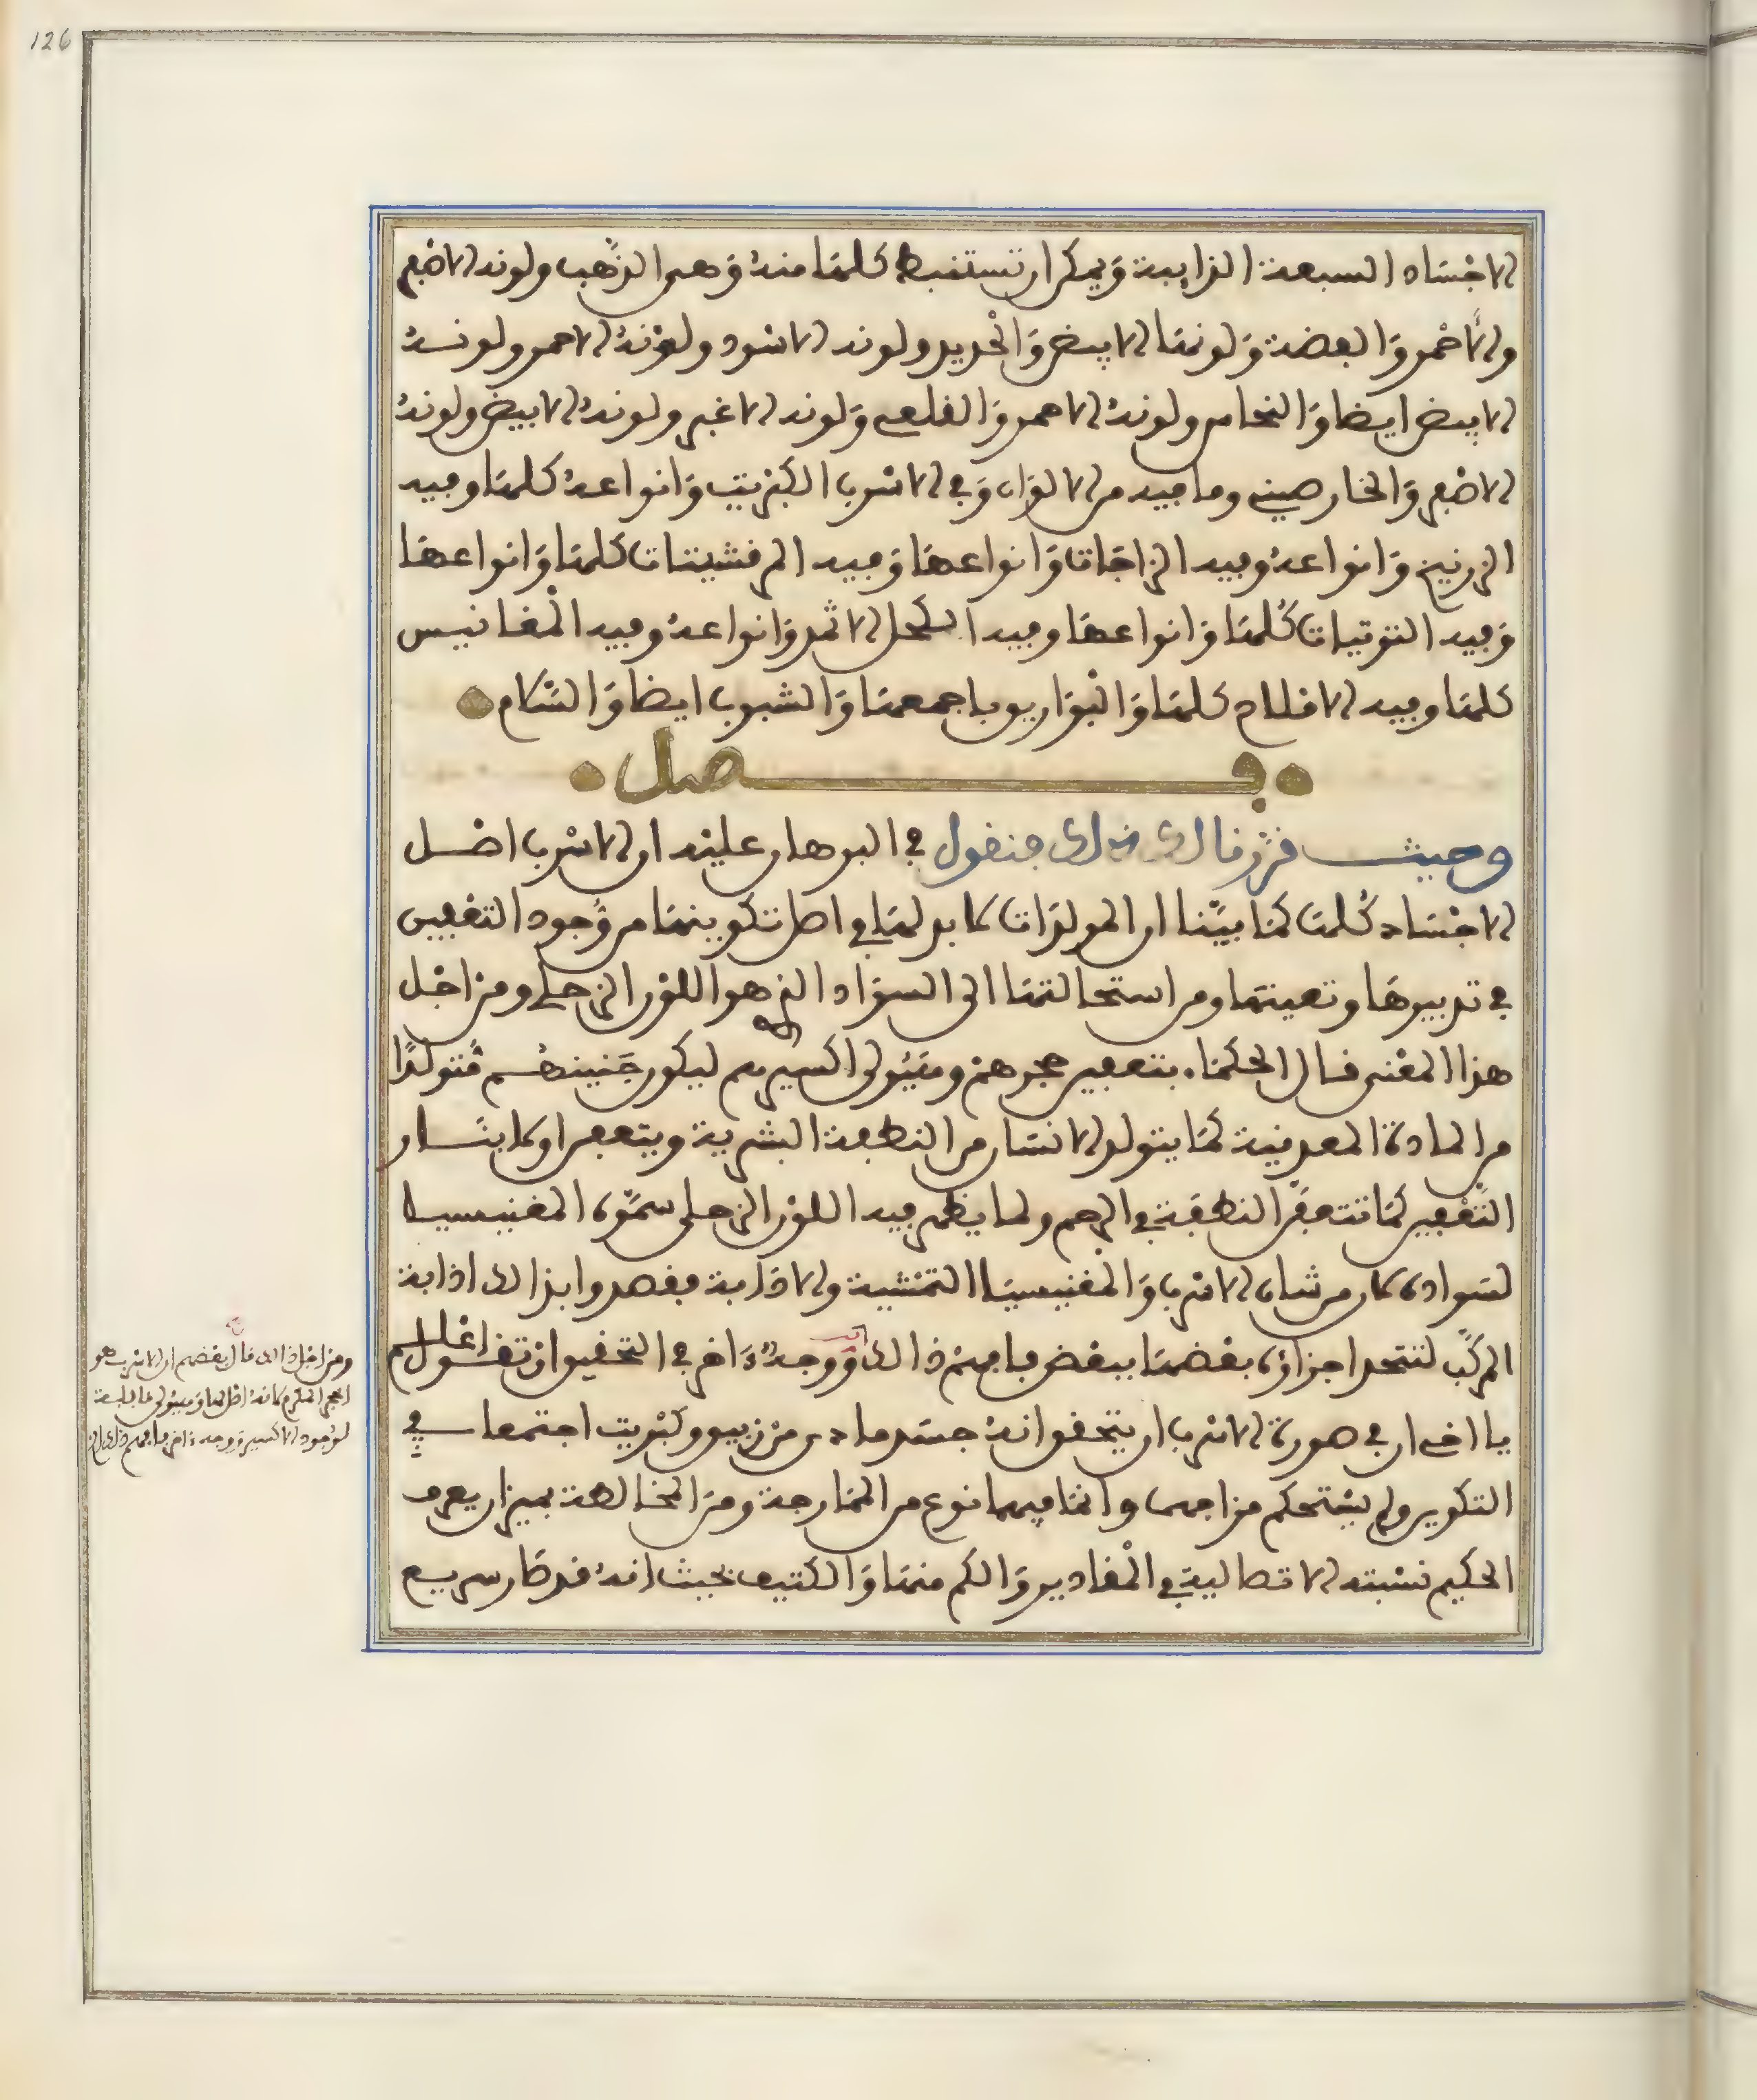 126
الاجساد السبعة الذايبة ويمكن ان تستنبط كلها منه وهى الذهب ولونه الاصفر
والاحمر والفضة ولونها الابيض والحديد ولونه الاسود ولونه الاحمر ولونه
الابيض ايضا والنحاس ولونه الاحمر والقلعى ولونه الاغبر ولونه الابيض ولونه
الاصفر والخارصينى وما فيه من الالوان وفى الاسرب الكبريت وانواعه كلها وفيه
الزرنيخ وانواعه وفيه الزاجات وانواعها وفيه المرقشيتات كلها وانواعها
وفيه التوتيات كلها وانواعها وفيه الكحل الاثمد وانواعه وفيه المغانيس
كلها وفيه الاملاح كلها والبواريق باجمعها والشبوب ايضا والسلام
فصل
وحيث قررنا لك ذلك فنقول فى البرهان عليه ان الاسرب اصل
الاجساد كلها كما بينا ان المولدات لا بد لها فى اصل تكوينها من وجود التعفين
فى تدبيرها وتعينها ومن استحالتها الى السواد الذى هو اللون الزحلى ومن اجل
هذا المعنى قال الحكماء بتعفين حجرهم وهيولى اكسيرهم ليكون جنينهم متولدا
من المادة المعدنية كما يتولد الانسان من النطفة البشرية ويتعفن اولا بنار
التعفين كما تتعفن النطفة فى الرحم ولما يظهر فيه اللون الزحلى سموه المغنيسيا
لسواده كان من شان الاسرب والمغنيسيا التمشية والاذابة فقصدوا بذالك اذابة
المركب لتتحد اجزاؤه بعضها ببعض فافهم ذالك ووجه ءاخر فى التحقيق ان تقول اعلم
يا اخى ان فى صورة الاسرب ان يتحقق انه جسد مادى من زيبق وكبريت اجتمعا فى
التكوين ولم يستحكم مزاجهما وانما فيهما نوع من الممازجة ومن المخالطة بميزان يعرف
الحكيم نسبته الاتصالية فى المقادير والكم منها والكتيف بحيث انه قد صار سريع
ومن اجل ذالك قال بعضهم ان الاسرب هو
الحجر المكرم لانه اصل لها وهيولى قابلة
لوجود الاكسير ووجه ءاخر فافهم ذلك